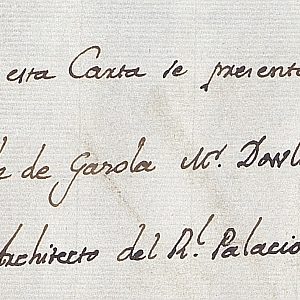 esta Carta se presenta
de Garola Mr. Dowl
Architecto del Rl. Palacio